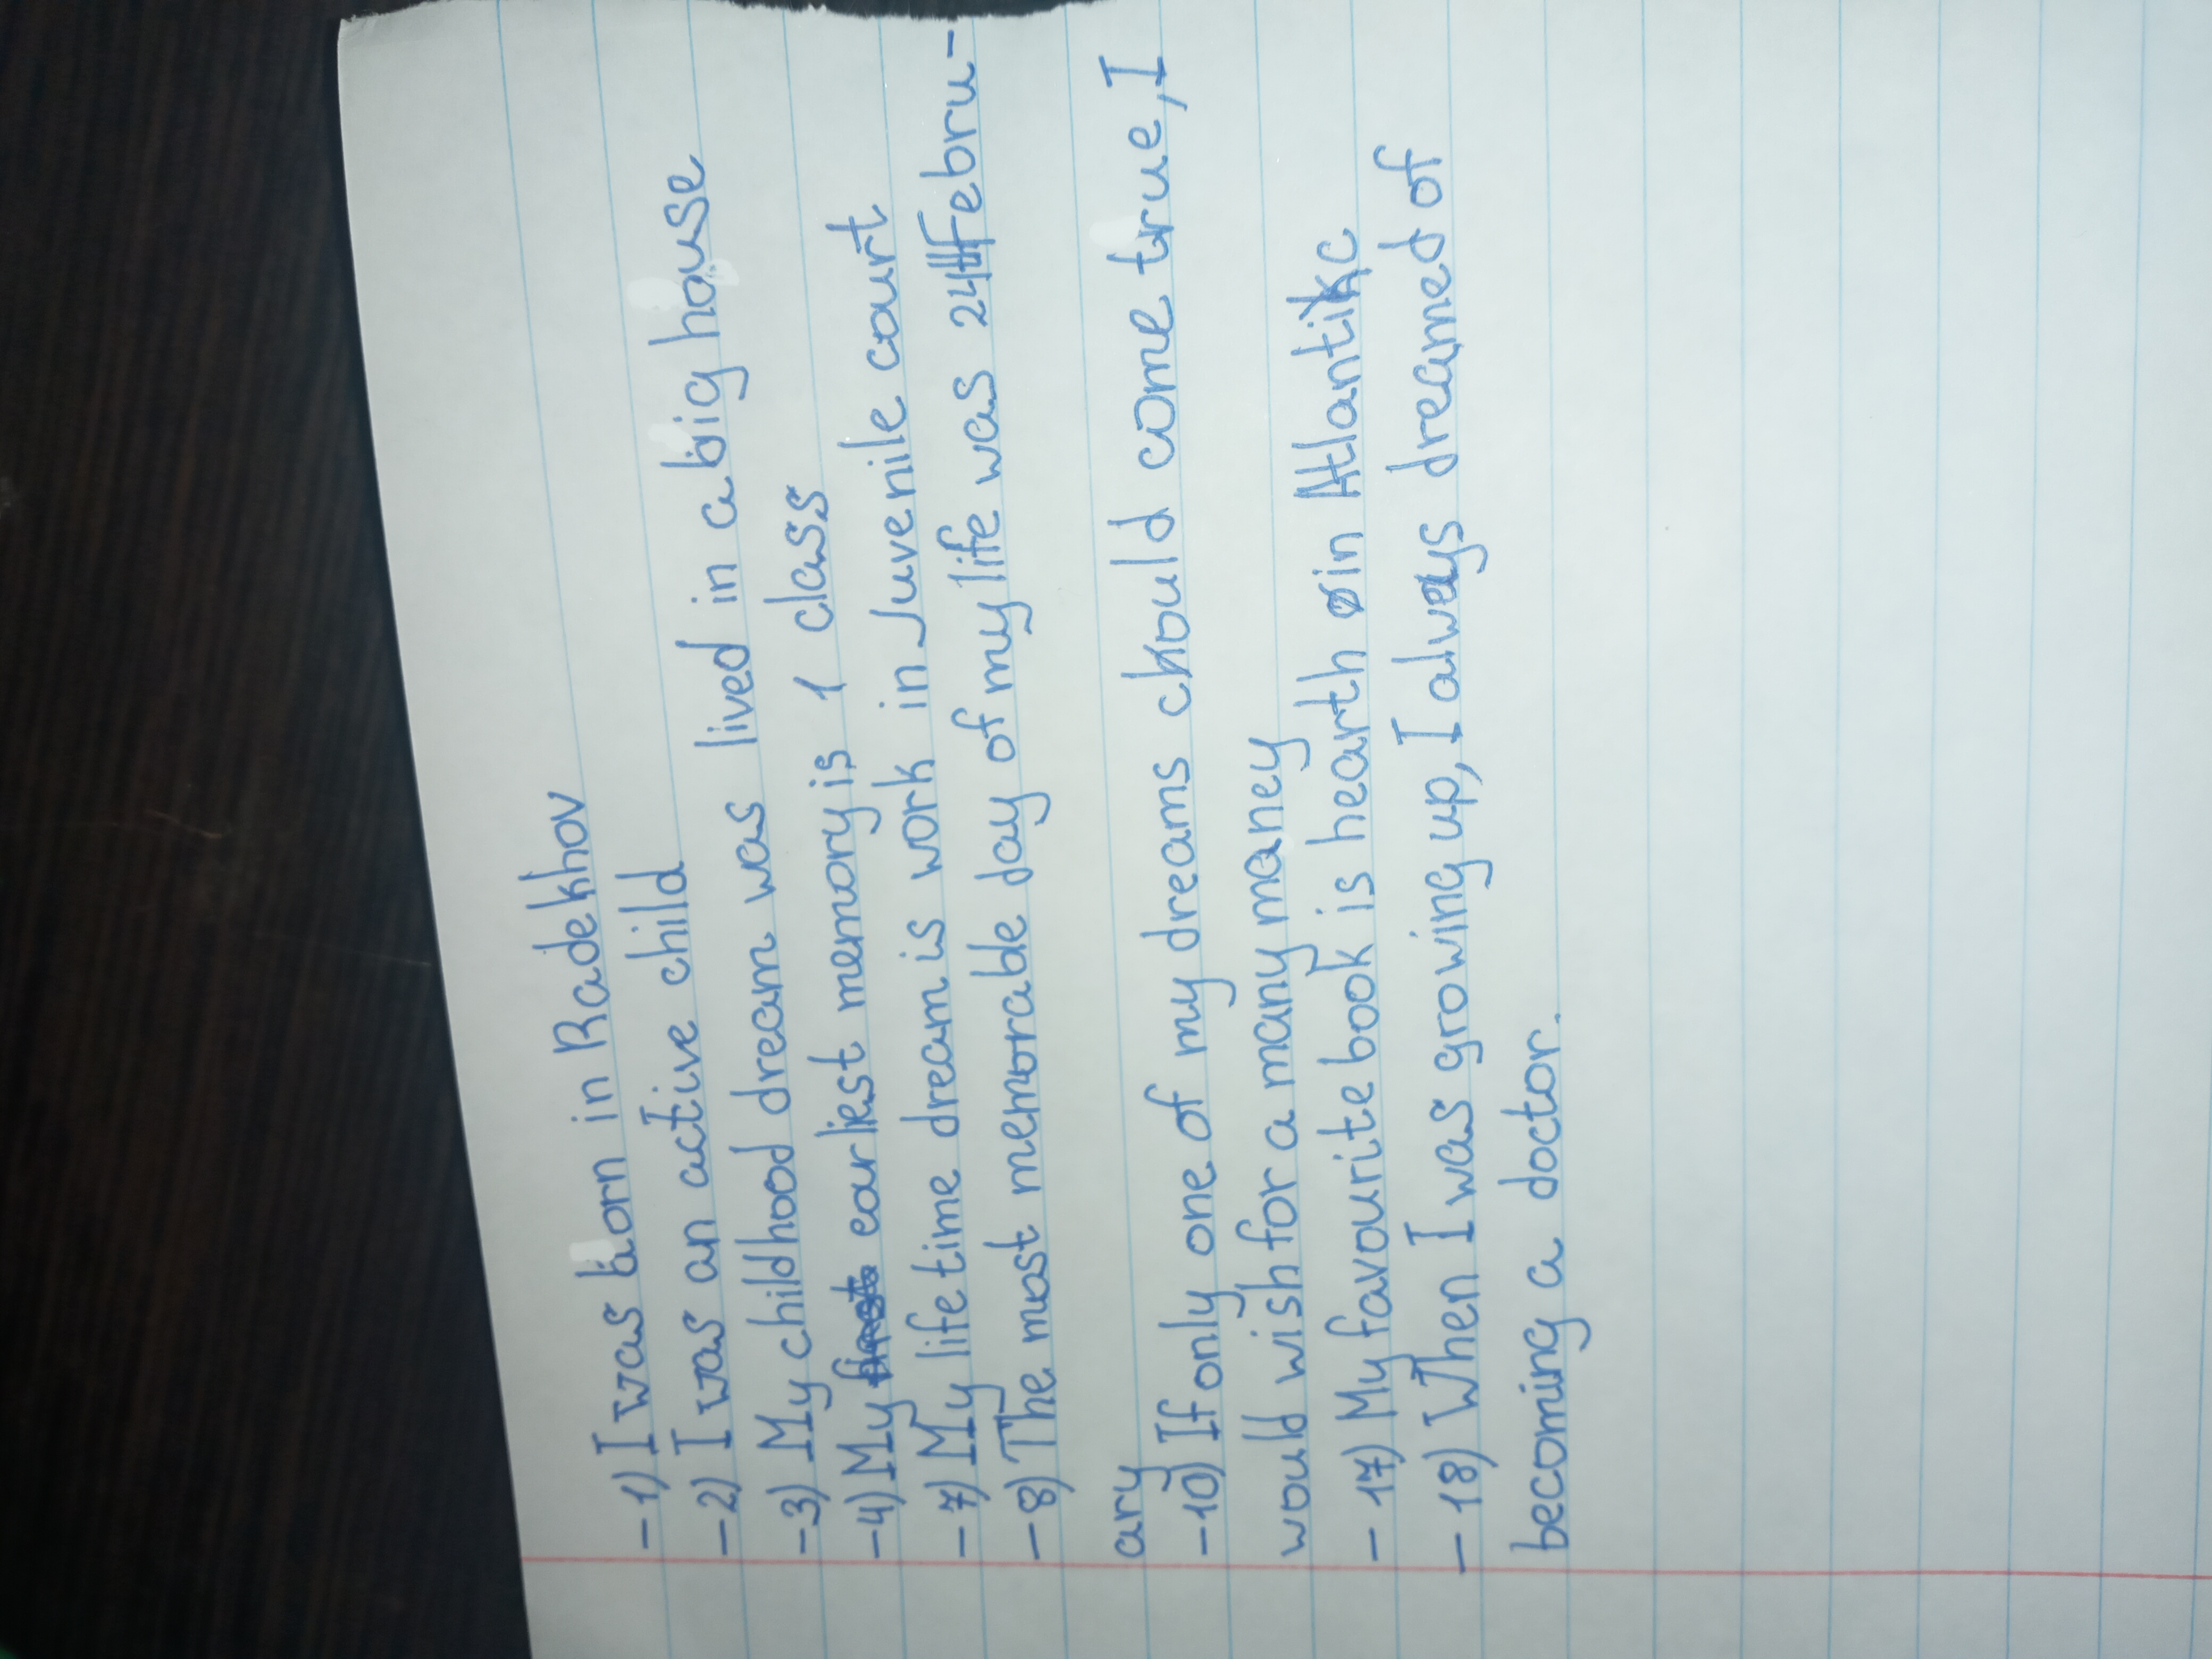 -1) I was born in Radekhov
-2) I was an active child
-3) My childhood dream was lived in a big house
-4) My earliest memory is 1 class
-7) My life time dream is work in Juvenile court
-8) The most memorable day of my life was 24 Febru-
ary
-10) If only one of my dreams chould come true, I
would wish for a many maney
-17) My favourite book is hearth in Atlantic
-18) When I was growing up, I always dreamed of
becoming a doctor.